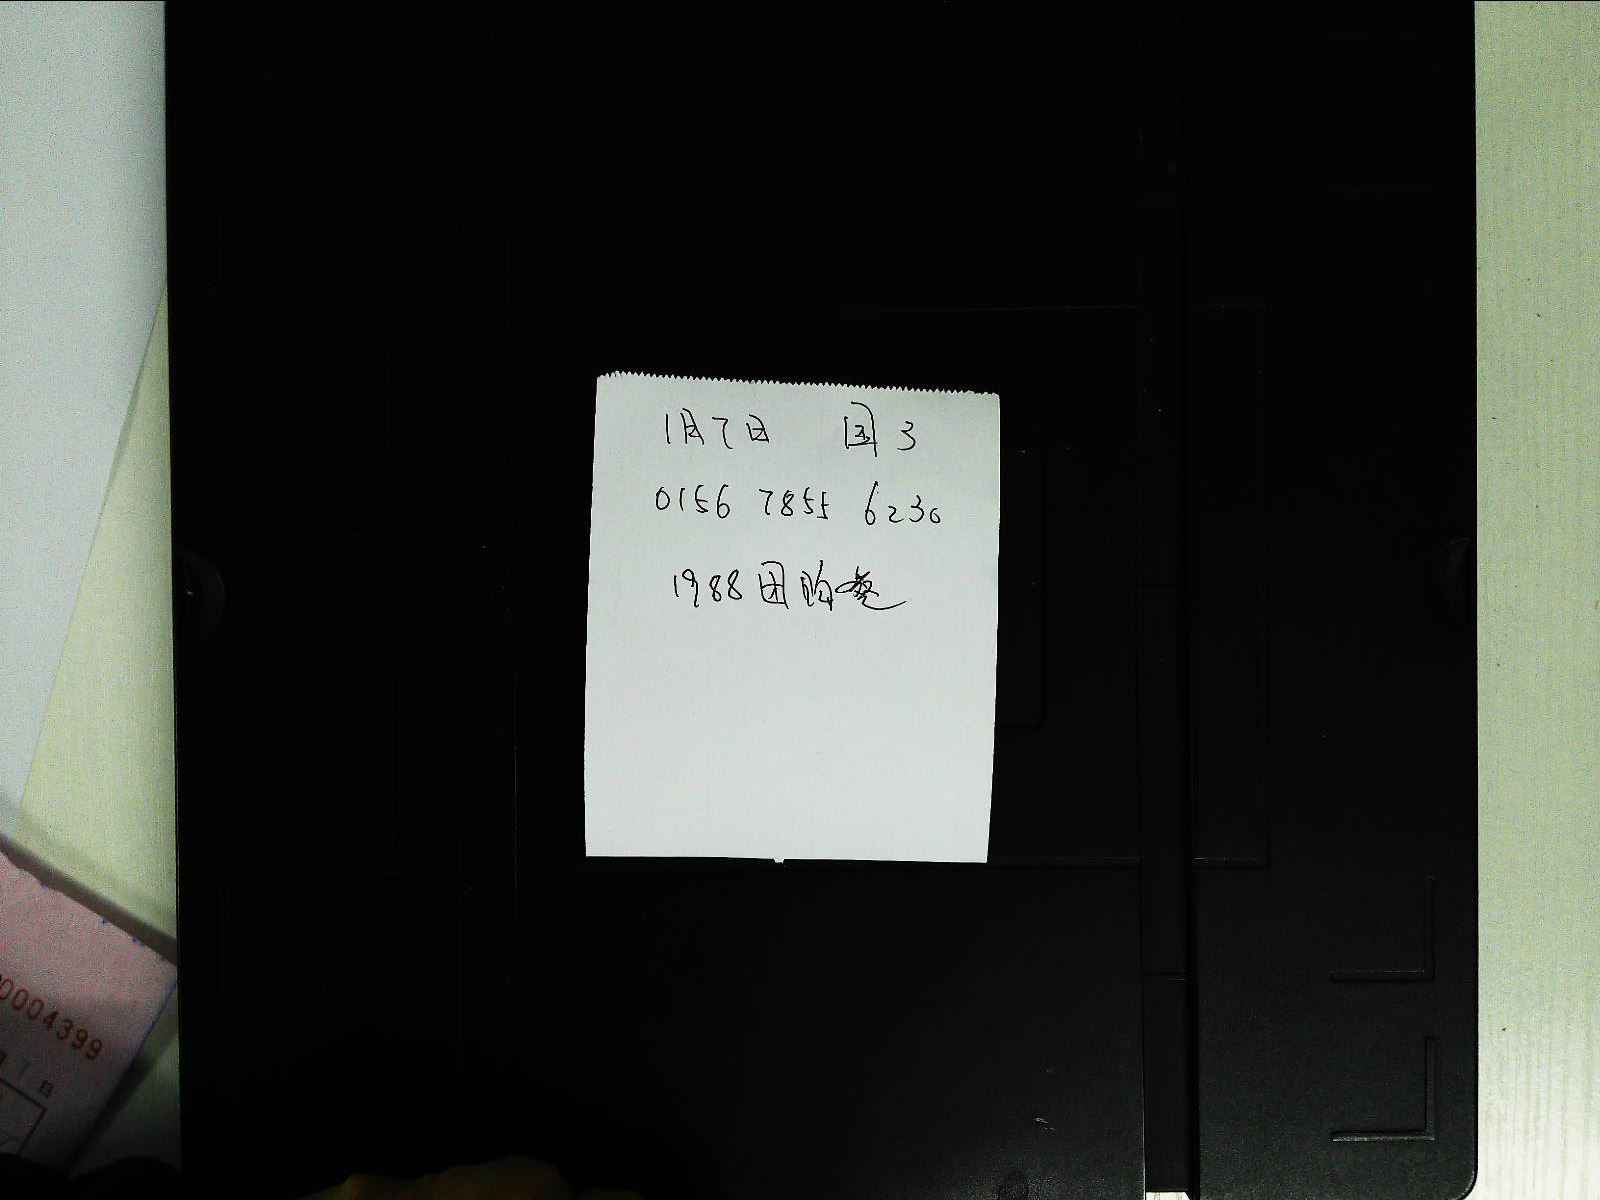 1月7日 国3
0156 7855 6230
1988团购卷
0004399
7日